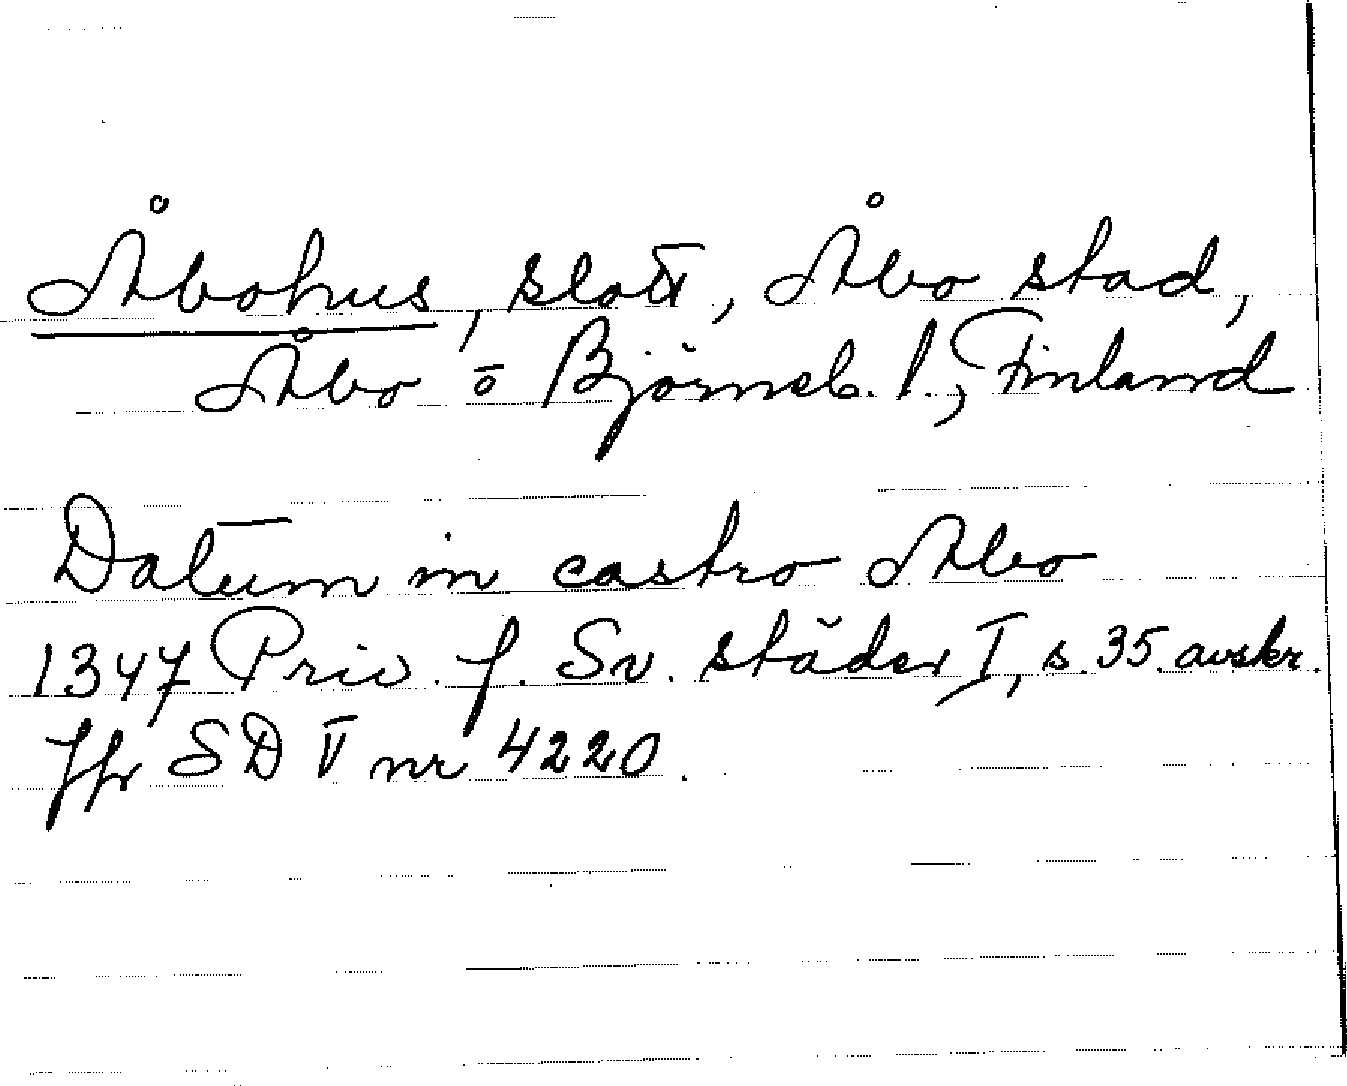 Åbohus, slott, Åbo stad,
Åbo o Björneb. l., Finland
Datum in castro Abo
1347 Priv. f. Sv. städer I, s. 35. avskr.
Jfr SD V nr 4220.